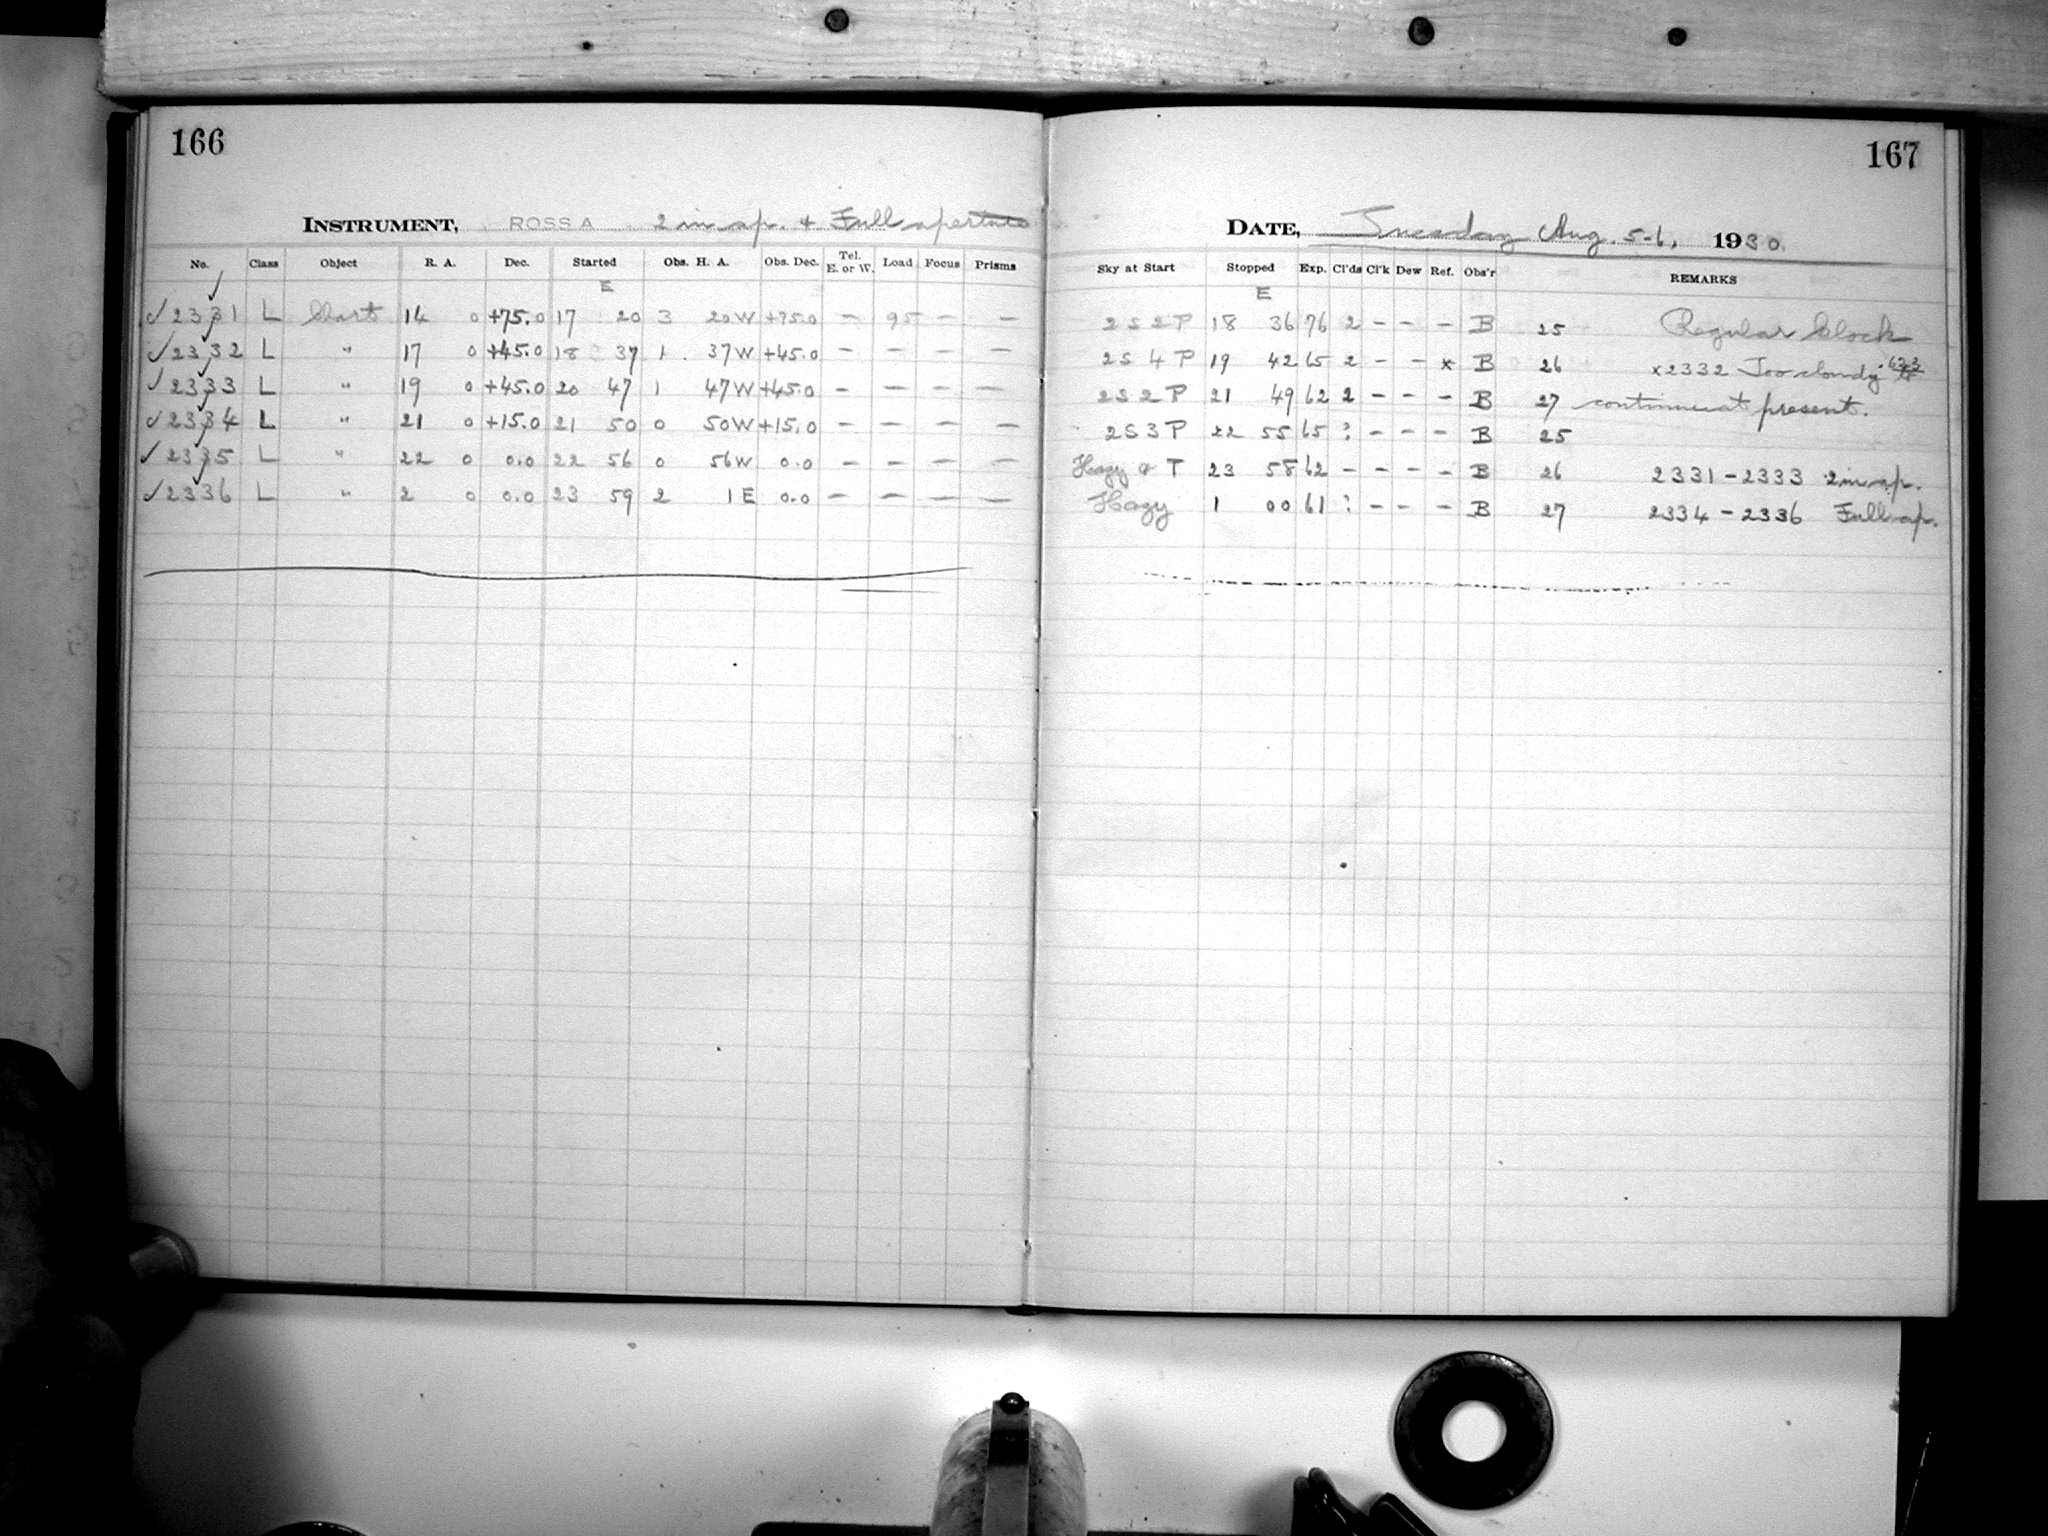 166
INSTRUMENT, ROSS A 2 in ap. + Full aperture
No. Class Object R. A. Dec. Started Obs. H. A. Obs. Dec. Tel. E. or W. Load Focus Prisms
E
✓ 2331 L Chart 14 0 +75.0 17 20 3 20 W +75.0 — 95 — —
✓ 2332 L " 17 0 +45.0 18 37 1 37 W +45.0 — — — —
✓ 2333 L " 19 0 +45.0 20 47 1 47 W +45.0 — — — —
✓ 2334 L " 21 0 +15.0 21 50 0 50 W +15.0 — — — —
✓ 2335 L " 22 0 0.0 22 56 0 56 W 0.0 — — — —
✓ 2336 L " 2 0 0.0 23 59 2 1 E 0.0 — — — —
167
DATE, Tuesday Aug. 5-6, 1930.
Sky at Start Stopped Exp. Cl'ds Cl'k Dew Ref. Obs'r REMARKS
E
2 S 2 P 18 36 76 2 – – – B 25 Regular Clock
2 S 4 P 19 42 65 2 – – x B 26 x2332 Too cloudy
2 S 2 P 21 49 62 2 – – – B 27 present.
2 S 3 P 22 55 65 ? – – – B 25
Hazy & T 23 58 62 – – – – B 26 2331 – 2333 2 in ap.
Hazy 1 00 61 ? – – – B 27 2334 – 2336 Full ap.